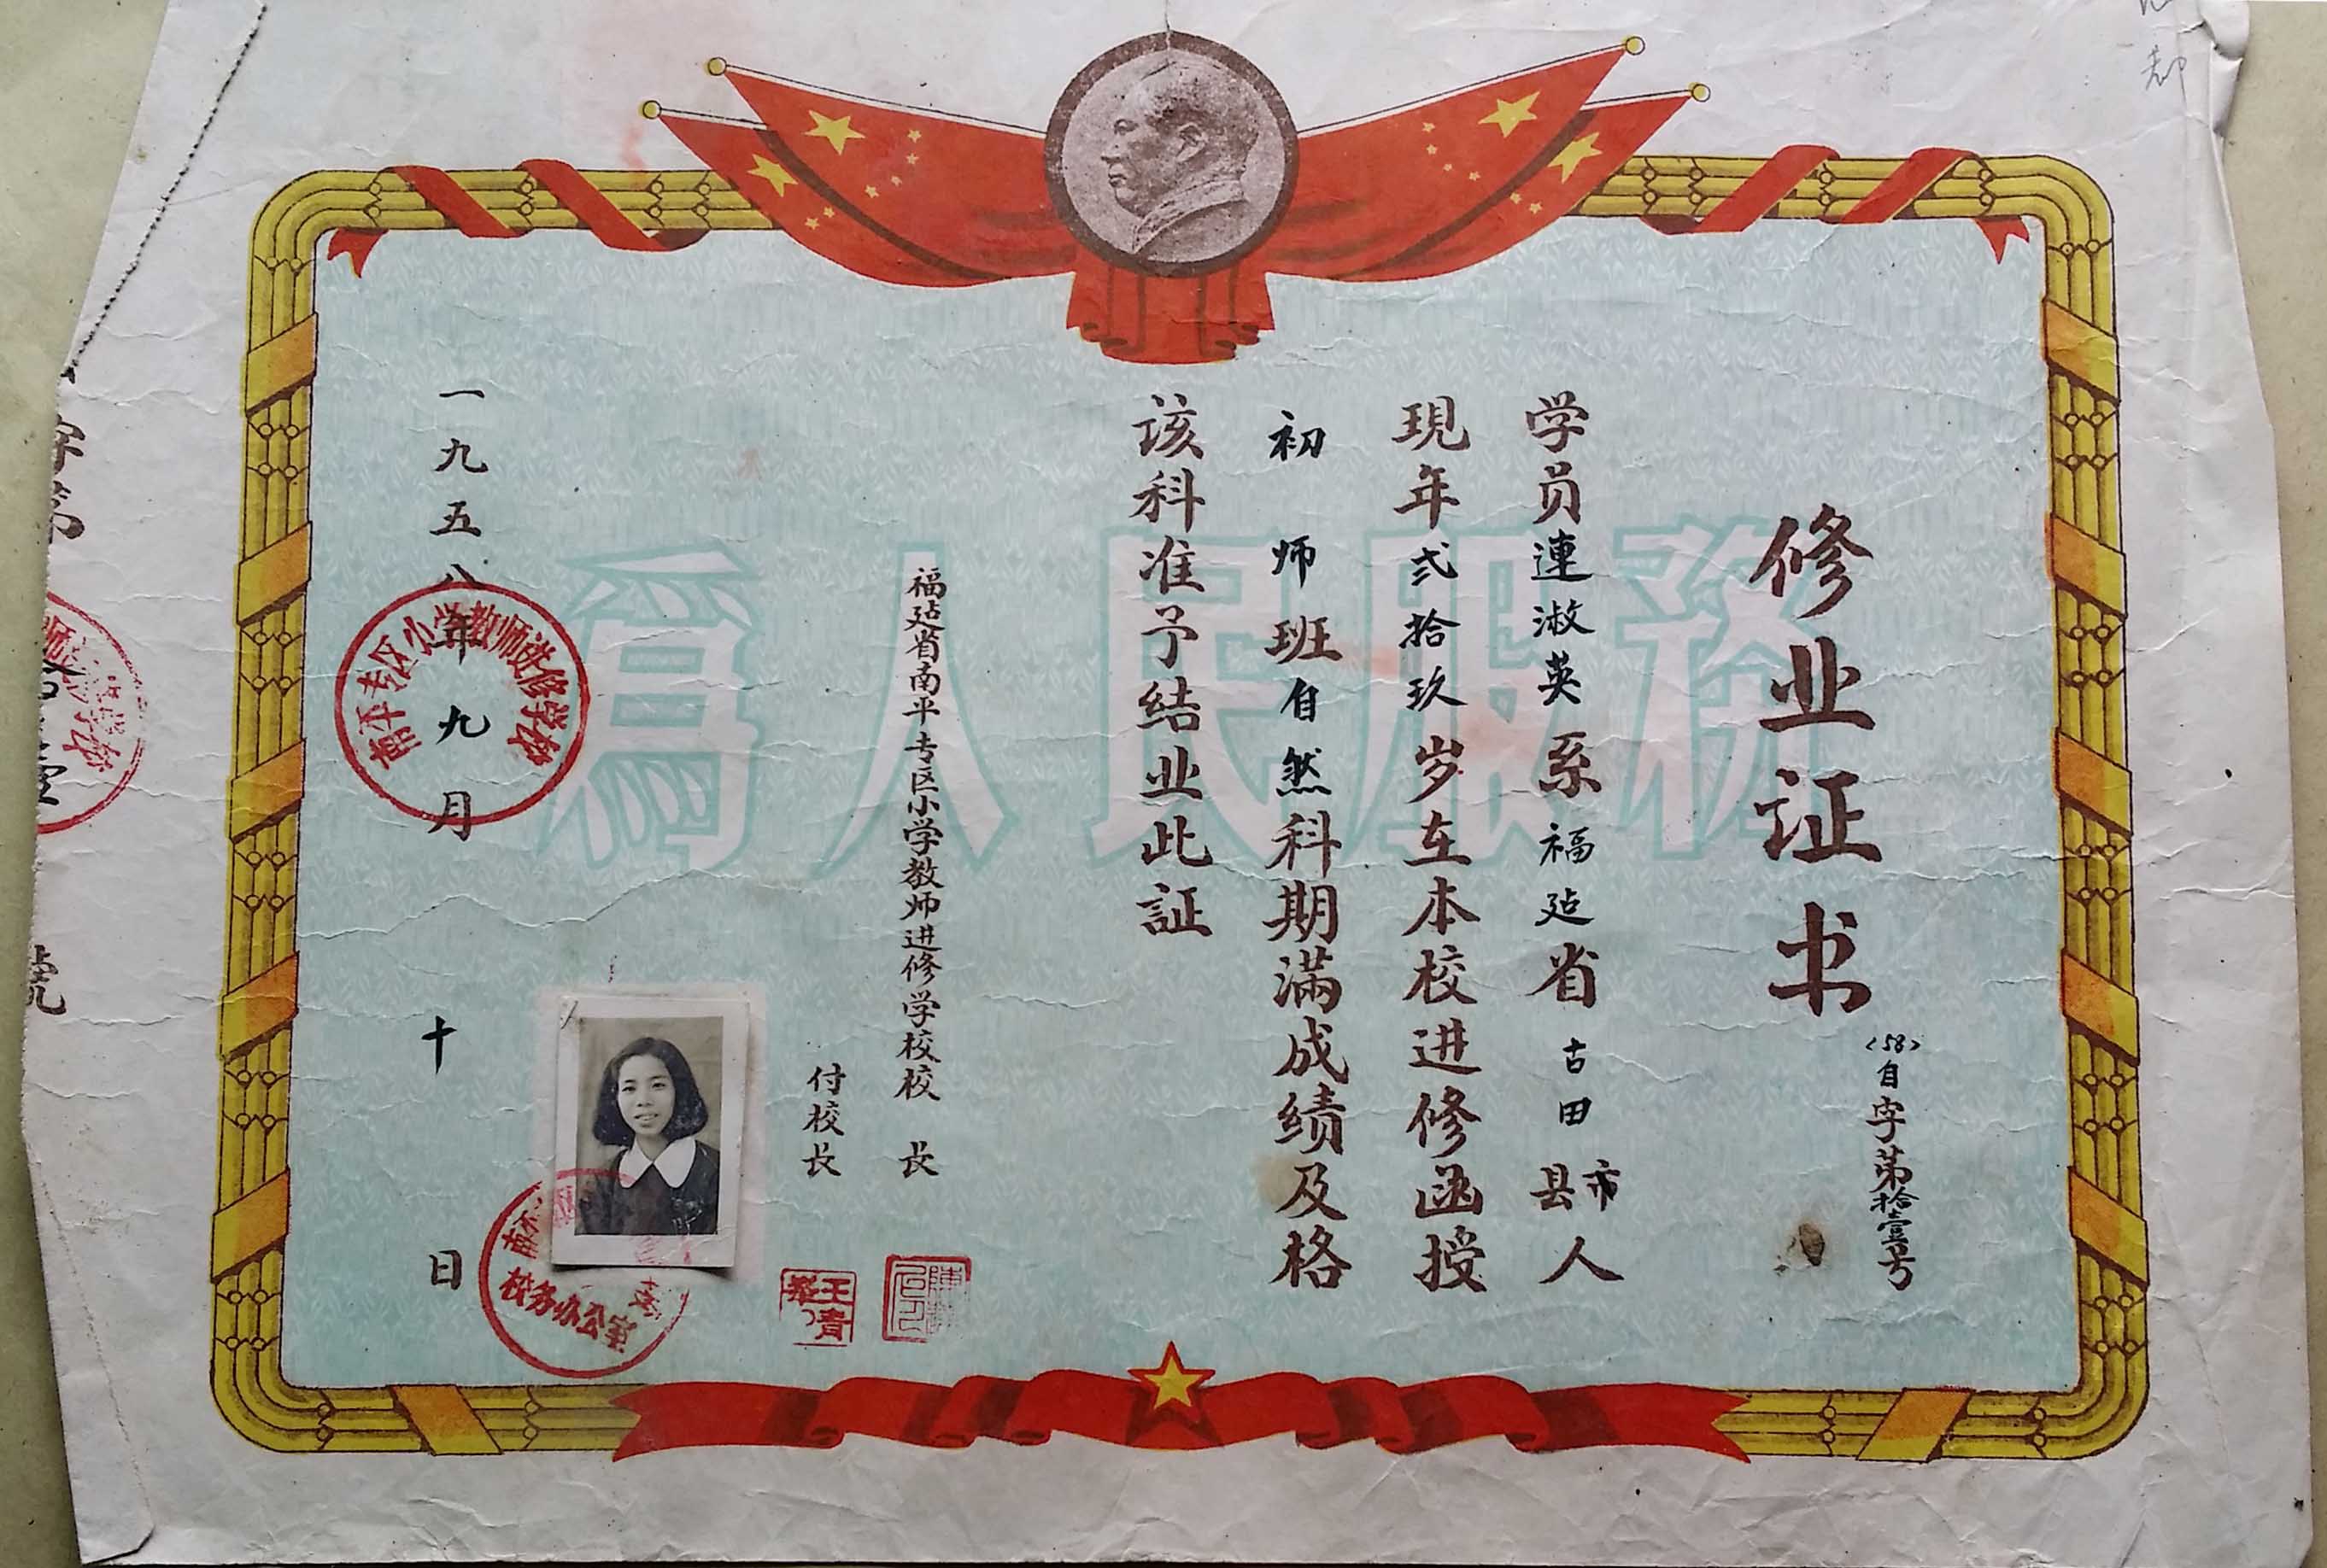 修业证书
(58)自字第拾壹号
学员連淑英系福建省古田县市人
現年弍拾玖岁在本校进修函授
初师班自然科期满成绩及格
该科准予结业此証
福建省南平专区小学教师进修学校校长
付校长
一九五八年九月十日
為人民服務
南平专区小学教师进修学校
校务办公室
王青
字第
號